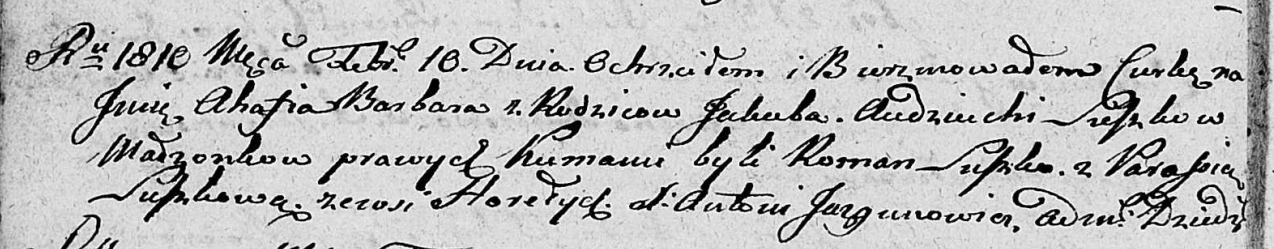 Ru 1810 Męca Febr. 10. Dnia Ochrzciłem i Bierzmowałem Curkę na
Jmię Ahafia Barbara z Rodzicow Jakuba. Audziuchi Suszkow
Małzonkow prawych Kumami byli Roman Suszko. z Parasią
Suszkową. zewsi Horełych. X: Antoni Jazgunowicz, Adm: